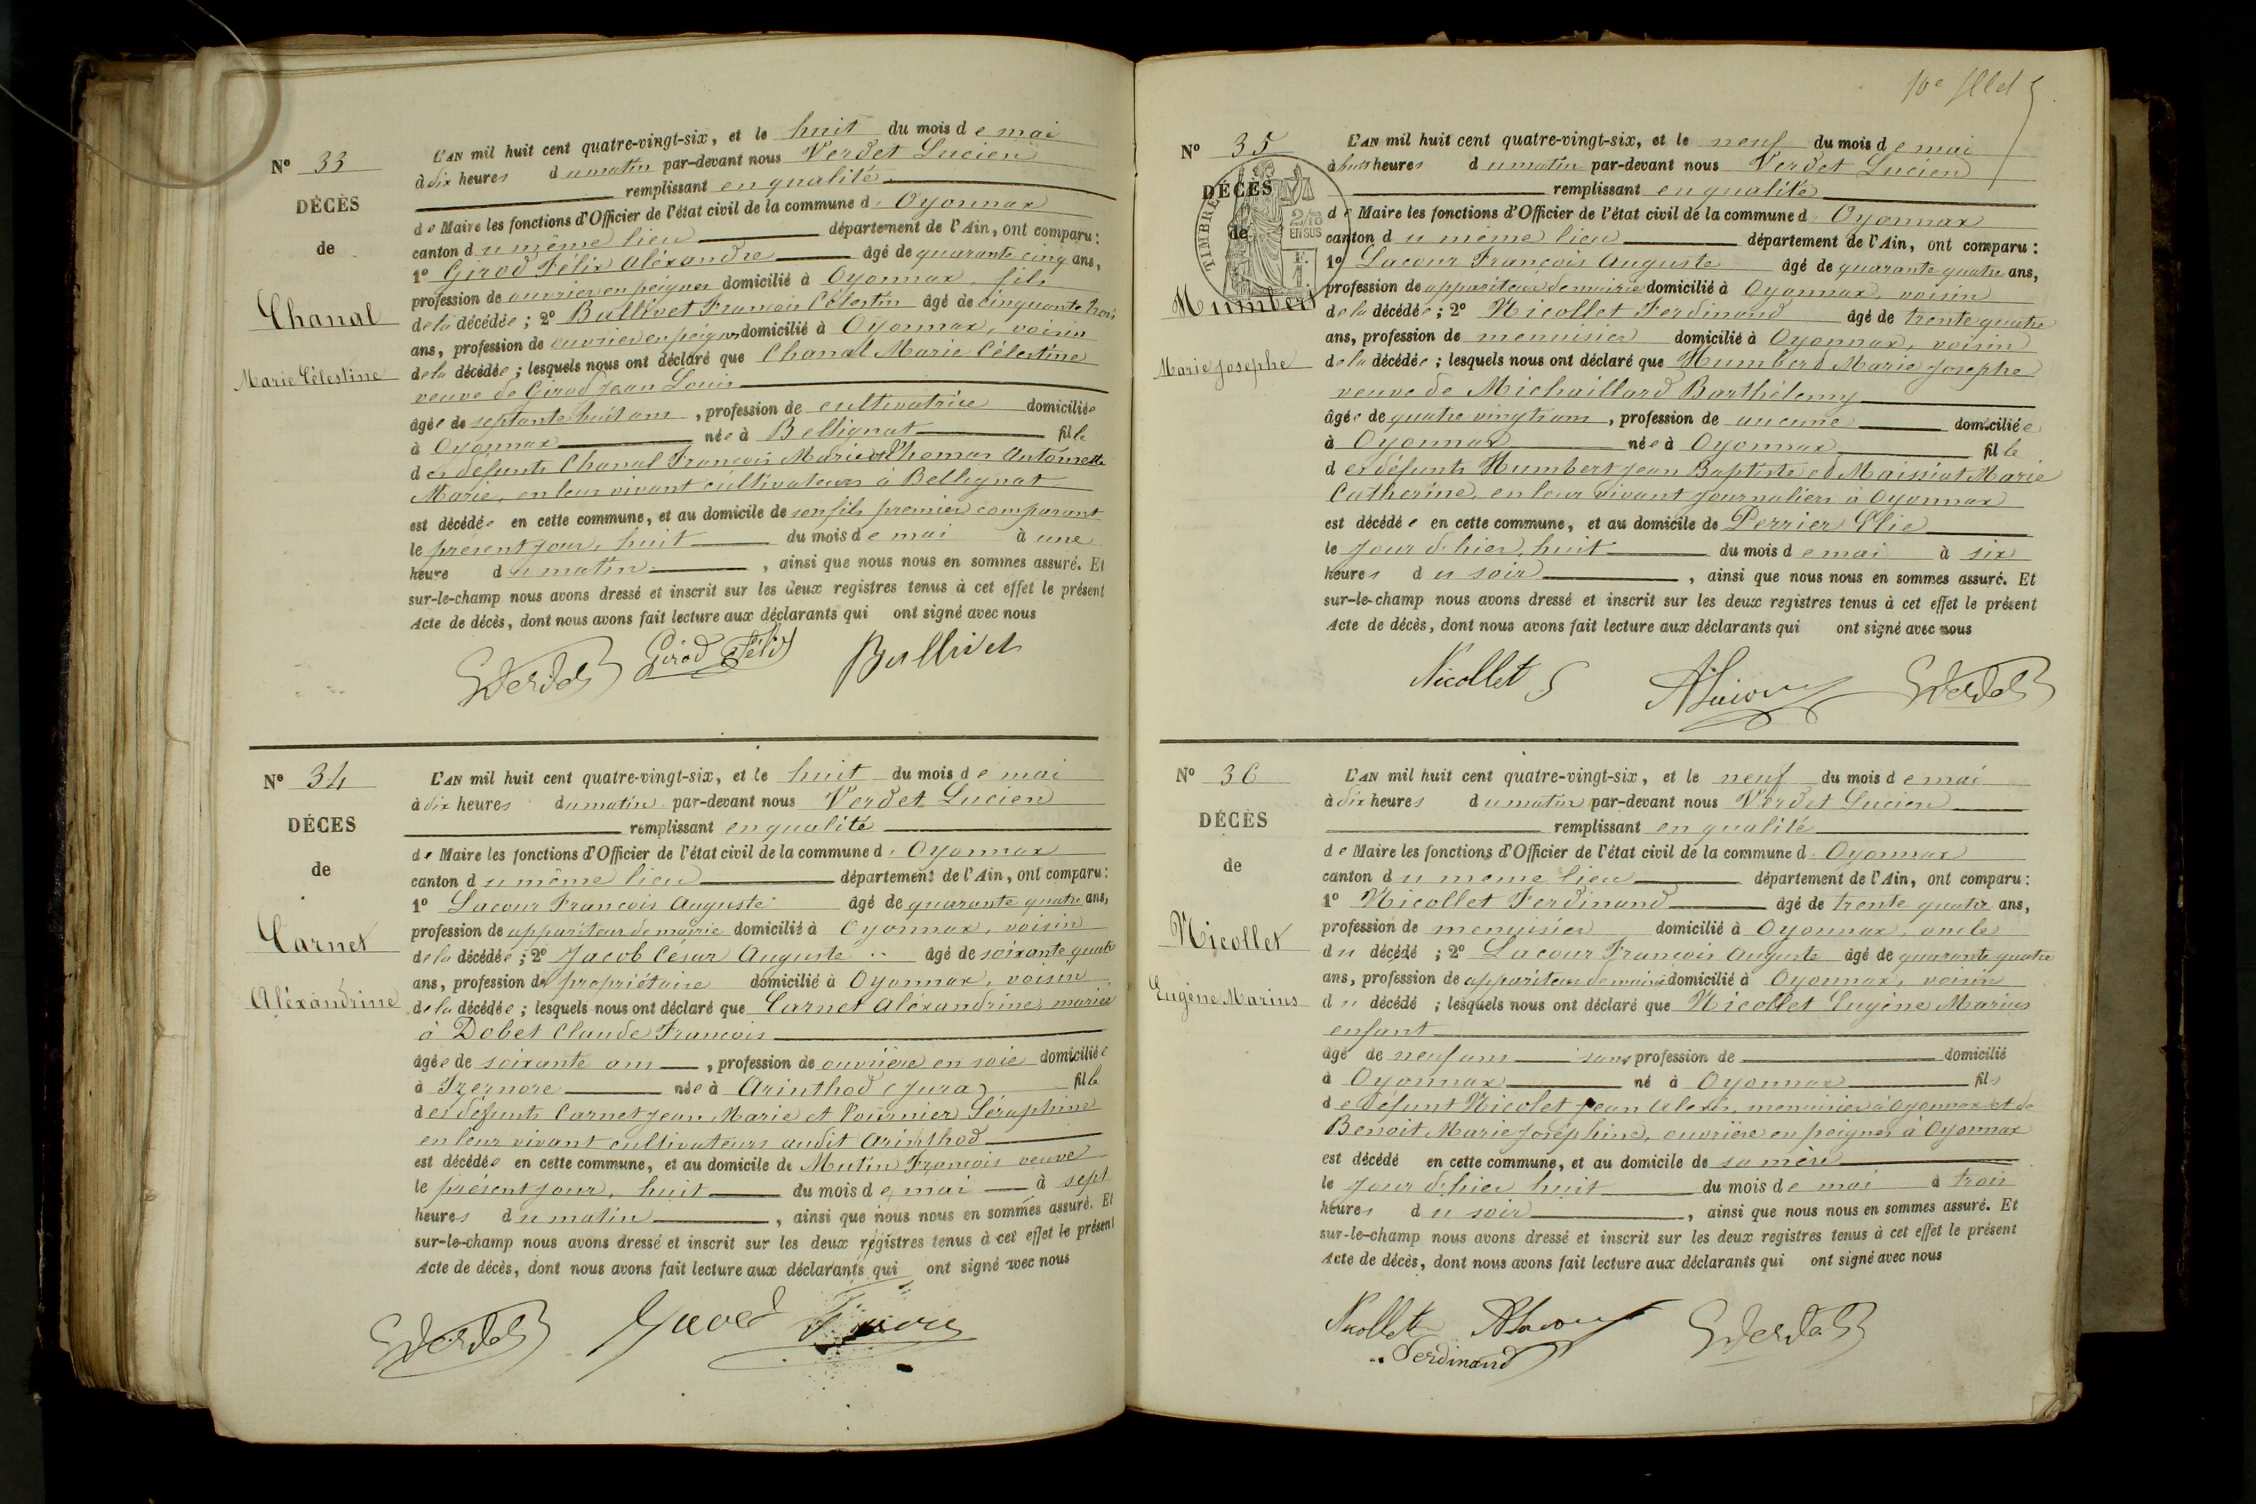 N° 33
DÉCÈS
de
Chanal
Marie Célestine
L'AN mil huit cent quatre-vingt-six, et le huit du mois de mai
à dix heures du matin par-devant nous Verdet Lucien
remplissant en qualité
de Maire les fonctions d'Officier de l'état civil de la commune d'Oyonnax
canton du même lieu département de l'Ain, ont comparu :
1° Girod Félix Aléxandre âgé de quarante cinq ans,
profession de ouvrier en peignes domicilié à Oyonnax, fils
de la décédée ; 2° Bullivet François Célestin âgé de cinquante trois
ans, profession de ouvrier en peignes domicilié à Oyonnax, voisin
de la décédée ; lesquels nous ont déclaré que Chanal Marie Célestine
veuve de Girod Jean Louis
âgée de septante huit ans, profession de cultivatrice domiciliée
à Oyonnax née à Bellignat fille
des défunts Chanal François Marie et Thomas Antoinette
Marie, en leur vivant cultivateurs à Bellignat
est décédée en cette commune, et au domicile de son fils premier comparant
le présent jour, huit du mois de mai à une
heure du matin, ainsi que nous nous en sommes assuré. Et
sur-le-champ nous avons dressé et inscrit sur les deux registres tenus à cet effet le présent
Acte de décès, dont nous avons fait lecture aux déclarants qui ont signé avec nous
Verdet Girod Félix Bullivet
N° 34
DÉCES
de
Carnet
Aléxandrine
L'AN mil huit cent quatre-vingt-six, et le huit du mois de mai
à dix heures du matin par-devant nous Verdet Lucien
remplissant en qualité
de Maire les fonctions d'Officier de l'état civil de la commune d'Oyonnax
canton du même lieu département de l'Ain, ont comparu :
1° Lacour François Auguste âgé de quarante quatre ans,
profession de appariteur de mairie domicilié à Oyonnax, voisin
de la décédée ; 2° Jacob César Auguste âgé de soixante quatre
ans, profession de propriétaire domicilié à Oyonnax, voisin
de la décédée ; lesquels nous ont déclaré que Carnet Aléxandrine, mariée
à Dobet Claude François
âgée de soixante ans, profession de ouvrière en soie domiciliée
à Izernore née à Arinthod (Jura) fille
des défunts Carnet Jean Marie et Fournier Séraphine
en leur vivant cultivateurs audit Arinthod
est décédée en cette commune, et au domicile de Mutin François veuve
le présent jour, huit du mois de mai à sept
heures du matin, ainsi que nous nous en sommes assuré. Et
sur-le-champ nous avons dressé et inscrit sur les deux registres tenus à cet effet le présent
Acte de décès, dont nous avons fait lecture aux déclarants qui ont signé avec nous
Verdet Jacob
10e
N° 35
DÉCÈS
de
TIMBRE
2/10 EN SUS
Humbert
Marie Josephe
L'AN mil huit cent quatre-vingt-six, et le neuf du mois de mai
à huit heures du matin par-devant nous Verdet Lucien
remplissant en qualité
de Maire les fonctions d'Officier de l'état civil de la commune d'Oyonnax
canton du même lieu département de l'Ain, ont comparu :
1° Lacour François Auguste âgé de quarante quatre ans,
profession de appariteur de mairie domicilié à Oyonnax, voisin
de la décédée ; 2° Nicollet Ferdinand âgé de trente quatre
ans, profession de menuisier domicilié à Oyonnax, voisin
de la décédée ; lesquels nous ont déclaré que Humbert Marie Josephe
veuve de Michaillard Barthélemy
âgée de quatre vingt ans, profession de aucune domiciliée
à Oyonnax née à Oyonnax fille
des défunts Humbert Jean Baptiste et Maissiat Marie
Catherine, en leur vivant journaliers à Oyonnax
est décédée en cette commune, et au domicile de Perrier Elie
le jour d'hier, huit du mois de mai à six
heures du soir, ainsi que nous nous en sommes assuré. Et
sur-le-champ nous avons dressé et inscrit sur les deux registres tenus à cet effet le présent
Acte de décès, dont nous avons fait lecture aux déclarants qui ont signé avec nous
Nicollet ALacour Verdet
N° 36
DÉCÈS
de
Nicollet
Eugène Marius
L'AN mil huit cent quatre-vingt-six, et le neuf du mois de mai
à dix heures du matin par-devant nous Verdet Lucien
remplissant en qualité
de Maire les fonctions d'Officier de l'état civil de la commune d'Oyonnax
canton du même lieu département de l'Ain, ont comparu :
1° Nicollet Ferdinand âgé de trente quatre ans,
profession de menuisier domicilié à Oyonnax, oncle
du décédé ; 2° Lacour François Auguste âgé de quarante quatre
ans, profession de appariteur de mairie domicilié à Oyonnax, voisin
du décédé ; lesquels nous ont déclaré que Nicollet Eugène Marius
enfant
âgé de neuf ans sans profession de domicilié
à Oyonnax né à Oyonnax fils
de défunt Nicolet Jean Alexis, menuisier à Oyonnax et de
Benoit Marie Joséphine, ouvrière en peignes à Oyonnax
est décédé en cette commune, et au domicile de sa mère
le jour d'hier huit du mois de mai à trois
heures du soir, ainsi que nous nous en sommes assuré. Et
sur-le-champ nous avons dressé et inscrit sur les deux registres tenus à cet effet le présent
Acte de décès, dont nous avons fait lecture aux déclarants qui ont signé avec nous
Nicollet ALacour Verdet
Ferdinand